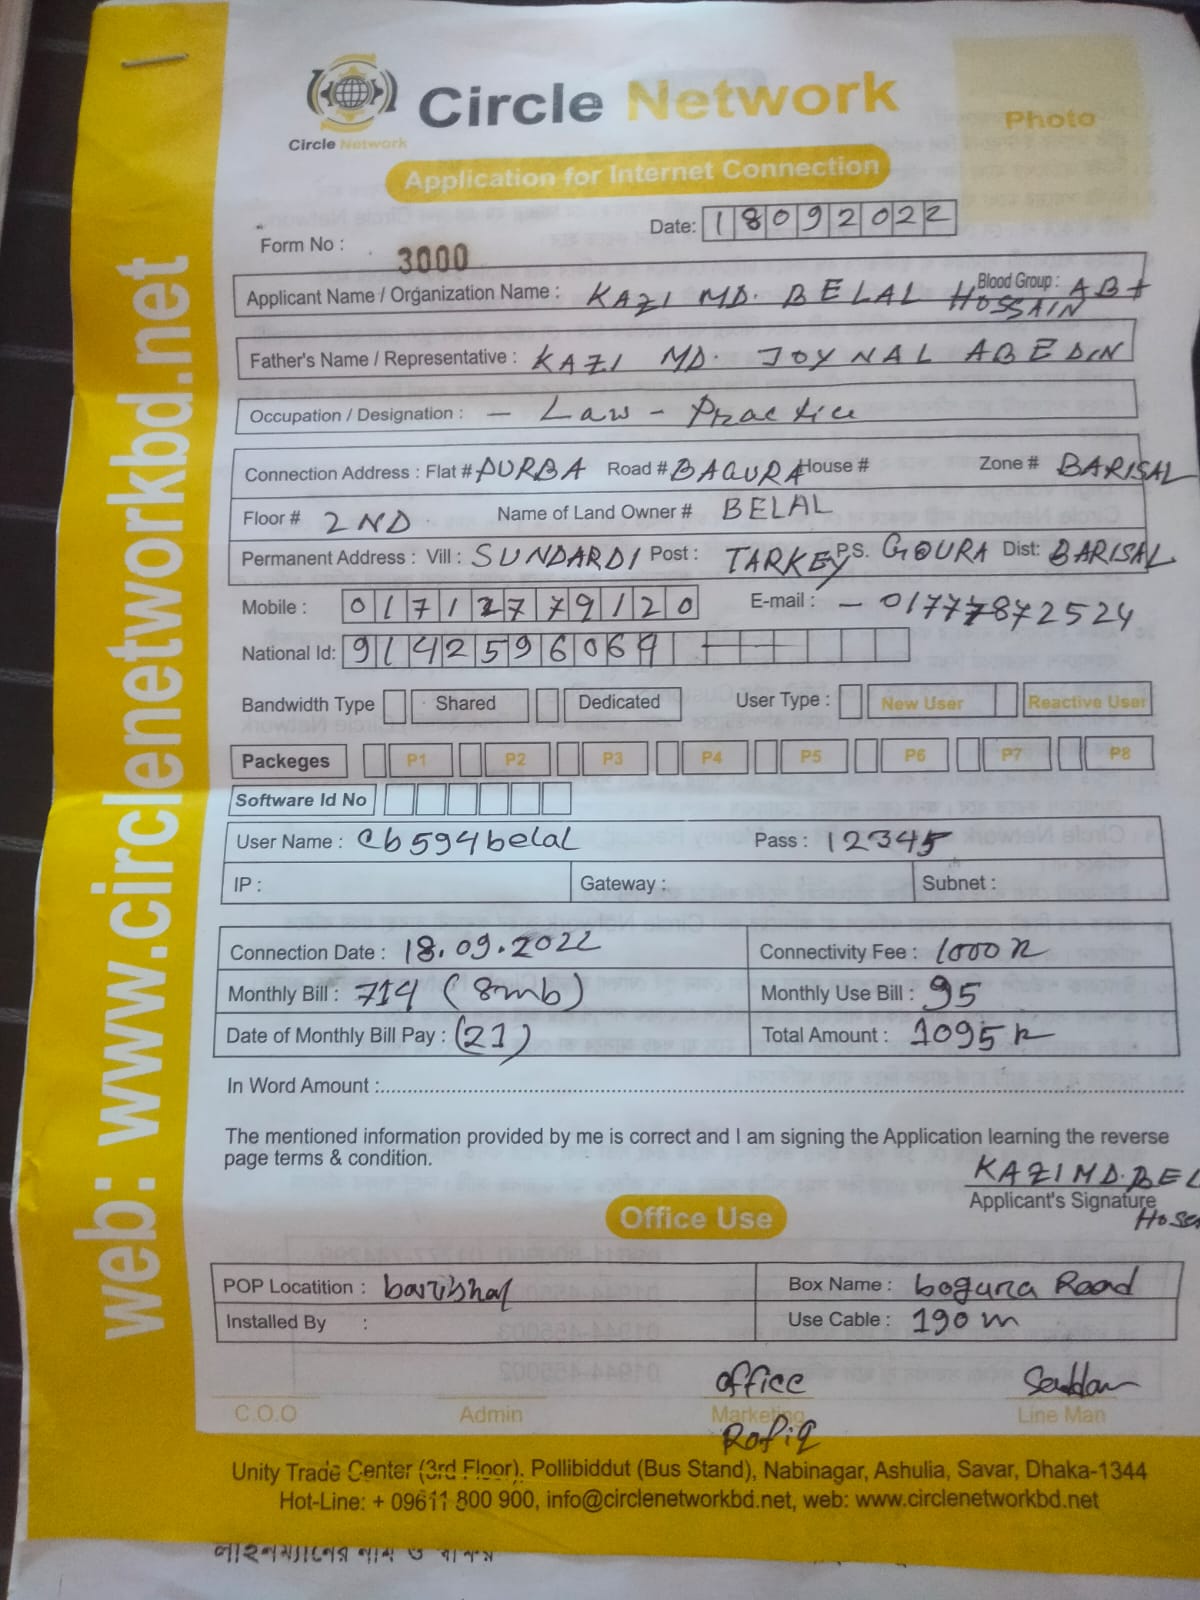 Circle Network
Circle Network
Photo
Application for Internet Connection
Date: 18092022
Form No : 3000
Applicant Name / Organization Name : KAZI MD. BELAL HOSSAIN Blood Group : AB+
Father's Name / Representative : KAZI MD. JOYNAL ABEDIN
Occupation / Designation : - Law - Practice
Connection Address : Flat # PURBA Road # BAGURA House # Zone # BARISAL
Floor # 2ND Name of Land Owner # BELAL
Permanent Address : Vill : SUNDARDI Post : TARKEY P.S. GOURA Dist: BARISAL
Mobile : 01712779120 E-mail : - 01777872524
National Id: 9142596069
Bandwidth Type Shared Dedicated User Type : New User Reactive User
Packeges P1 P2 P3 P4 P5 P6 P7 P8
Software Id No
User Name : cb594belal Pass : 12345
IP : Gateway : Subnet :
Connection Date : 18.09.2022 Connectivity Fee : 1000
Monthly Bill : 714 (8mb) Monthly Use Bill : 95
Date of Monthly Bill Pay : (21) Total Amount : 1095
In Word Amount :
The mentioned information provided by me is correct and I am signing the Application learning the reverse
page terms & condition.
KAZI MD. BEL
Applicant's Signature
Office Use
POP Locatition : barishal Box Name : bogura Road
Installed By : Use Cable : 190 m
office Saddam
C.O.O Admin Marketing Line Man
Rofiq
Unity Trade Center (3rd Floor), Pollibiddut (Bus Stand), Nabinagar, Ashulia, Savar, Dhaka-1344
Hot-Line: + 09611 800 900, info@circlenetworkbd.net, web: www.circlenetworkbd.net
web: www.circlenetworkbd.net
লাইনম্যানের নাম ও